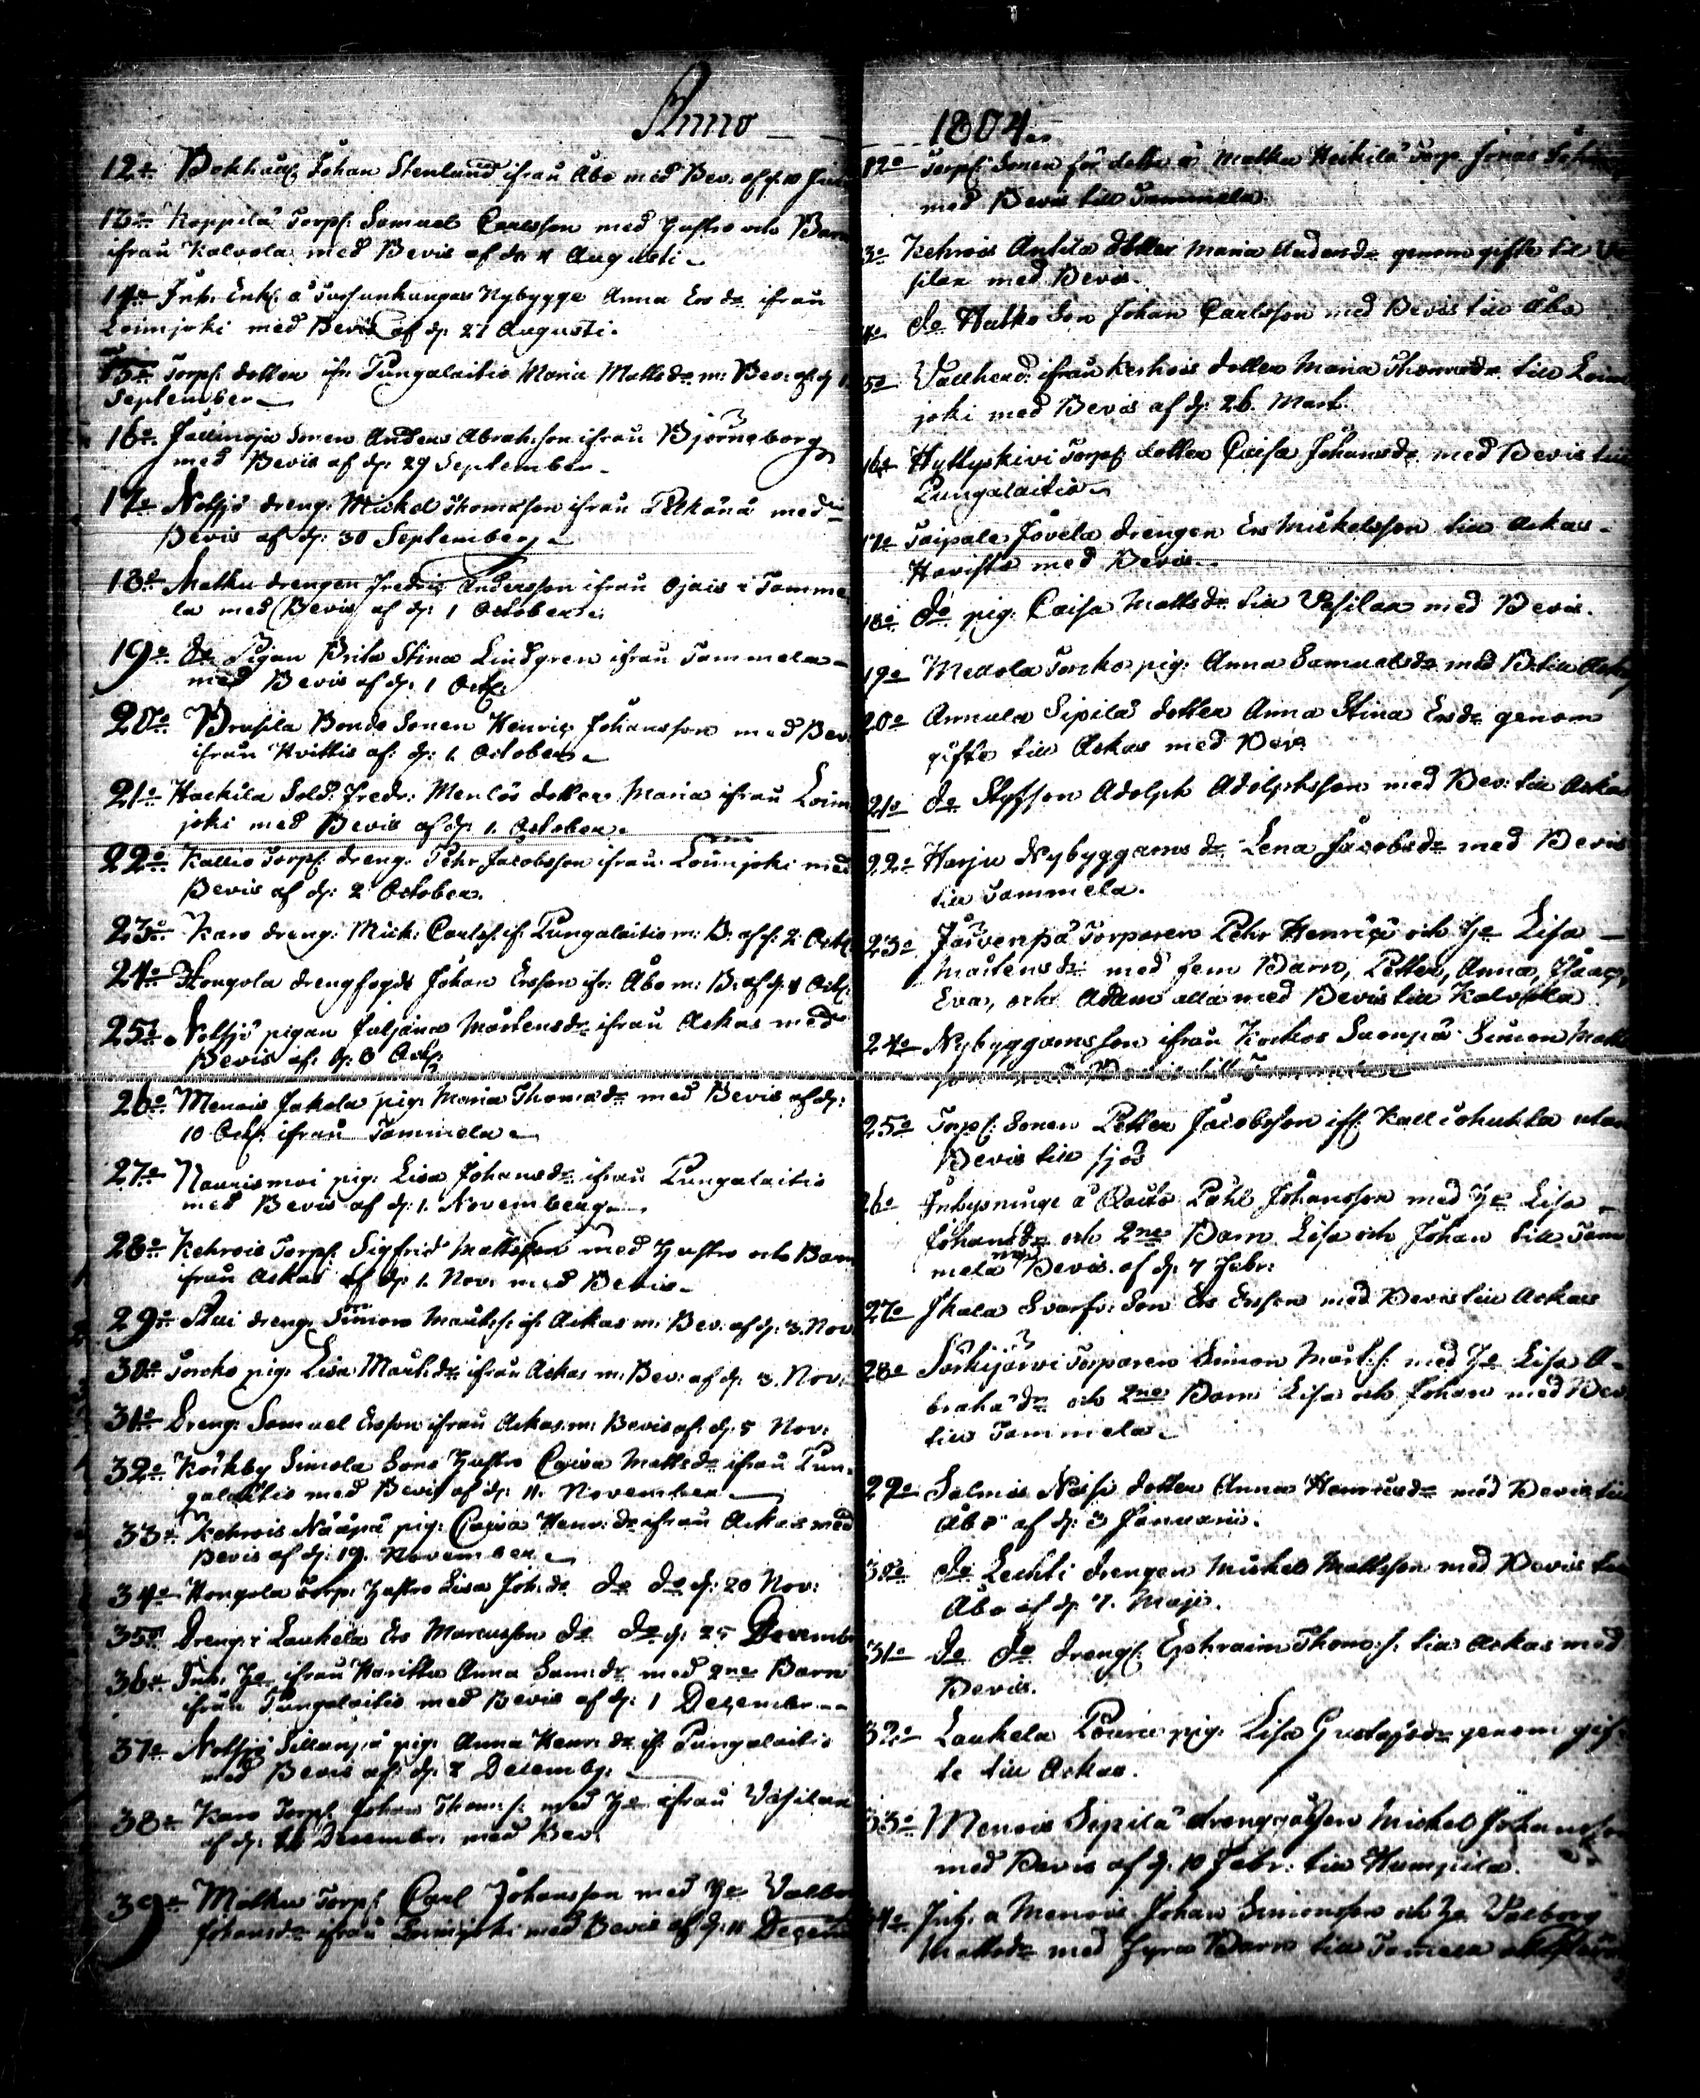 Anno
12o Bokhåll: Johan Stenlund ifrån Åbo med Bev. af d:
13o Koppilä Torp: Samuel Carlsson med Hustro och Barn
ifrån Kalvola med Bevis af d: 4 Augusti
14o Inh. Enk: å Nybygge Anna Ersdr ifrån
Loimjoki med Bevis af d: 27 Augusti.
15o Torp: dotter ifr. Pungalaitio Maria Mattsdr m: Bev: af d: 1
September
16o Sonen Anders Abrah:son ifrån Björneborg
med Bevis af d: 29 September
17o Nolsjö dreng: Mickel Thomasson ifrån med
Bevis af d: 30 September
18o Matku drengen Fredric Andersson ifrån Ojais i Tamme
la med Bevis af d: 1 October
19o do Pigan Brita Stina Lindgren ifrån Tammela
med Bevis af d: 1 Oct:
20o Bonde Sonen Henric Johansson med Bev:
ifrån Hvittis af d: 1 October
21o Haekilä Sold: Fredr: Menlös dotter Maria ifrån Loim
joki med Bevis af d: 1. October
22o Kallio Torp: dreng: Pehr Jacobsson ifrån Loimjoki med
Bevis af d: 2 October.
23o Karo dreng: Mick: Carls: if: Pungalaitio m: B: af d: 2 Oct:
24o Hongola drengfogde Johan Ersson ifr: Åbo m: B: af d: 4 Oct:
25o Nolsjö pigan Juliana Mårtensdr ifrån Ackas med
Bevis af d: 8 Oct:
26o Menois Jakola pig: Maria Thomasdr med Bevis af d:
10 Oct: ifrån Tammela
27o pig: Lisa Johansdr ifrån Pungalaitio
med Bevis af d: 1. November
28o Kehrois Torp: Sigfrid Mattsson med Hustro och Barn
ifrån Ackas af d: 1. Nov: med Bevis
29o dreng: Simon if: Ackas m: Bev: af d: 3. Nov:
30o Torcko pig: Lisa Mårt:dr ifrån Ackas m: Bev: af d: 3. Nov:
31o Dreng: Samuel Ersson ifrån Ackas m: Bevis af d: 5 Nov:
32o Simola Sons Hustro Caisa Mattsdr ifrån Pun-
galaitio med Bevis af d: 11. November
33o Kehrois Nääpä pig: Caisa Henr:dr ifrån Ackas med
Bevis af d: 19. November
34o Hongola Torp: Hustro Lisa Joh:dr do do d: 20 Nov:
35o Dreng: i Laukela Ers Marcusson do do d: 25 Decembr
36o Inh: H:o ifrån Anna Sam:dr med 2ne Barn
ifrån Pungalaitio med Bevis af d: 1 Decembr
37o Nolsjö Sillanpä pig: Anna Henr:dr if: Pungalaitio
med Bevis af d: 2 Decemb:
38o Karo Torp: Johan Thom:s: med H:o ifrån Vesilax
af d: Decembr: med Bev:
39o Matku Torp: Carl Johansson med H:o Valbor
Johansdr ifrån Loimjoki med Bevis af d: 11
1804
12o Torp: Sonen för detta å Matku Heikilä Torp Jonas
med Bevis till Tammela.
3o Kehrois Anttila dotter Maria Andersdr genom gifte til Ve
silax med Bevis.
4o do Hutko Son Johan Carlsson med Bevis till Åbo
5o Vallherd: ifrån Kerhois dotter Maria Thomasdr till Loim
joki med Bevis af d: 26. Mart.
16o Hyttyskivi Torp: dotter Caisa Johansdr med Bevis till
Pungalaitio
17o Taipale Jövelä drengen Ers Mickelsson till Ackas-
med Bevis.
18o do pig: Caisa Mattsdr till Vesilax med Bevis.
19o Torcko pig: Anna Samuelsdr med B: till Ackas
20o Annula Sipilä dotter Anna Stina Ersdr genom
gifte till Ackas med Bev:
21o do Styfson Adolph Adolphsson med Bev: till Ackas
22o Harju Nybyggares dr Lena Jacobsdr med Bevis
till Tammela.
23o Järvenpä Torparen Pehr Henrics: och H:o Lisa
Mårtensdr med fem Barn, Petter, Anna, Isaac,
Eva, och Adam alla med Bevis till Kalvola
24o Nybyggareson ifrån Simon Matts
son med Bevis till Tammela
25o Torp: Sonen Petter Jacobsson if: Kalliohuhta utan
Bevis till sjös
26o Inhysninge å Påhl Johansson med H:o Lisa
Johansdr och 2ne Barn Lisa och Johan till Tam
mela med Bevis af d: 7 Febr:
27o Svarfv: Son Ers Ersson med Bevis till Ackas
28o Särkijärvi Torparen Simon Mårt:s: med H:o Lisa A-
braha dr och 2ne Barn Lisa och Johan med Bev:
till Tammela
29o Salmis Nässi dotter Anna Henricsdr med Bevis till
Åbo af d: 3 Januarii.
30o do Lechti drengen Mickel Mattsson med Bevis till
Åbo af d: 7. Maji.
31o do do dreng: Ephraim Thom:s: till Ackas med
Bevis.
32o Laukela pig: Lisa Gustafsdr genom gif-
te till Ackas.
33o Menois Sipilä drenggåssen Mickel Johansson
med Bevis af d: 10 Febr: till Humpila.
34o Inh: a Menois Johan Simonsson och H:o Valborg
Mattsdr med fyra Barn till Tamela